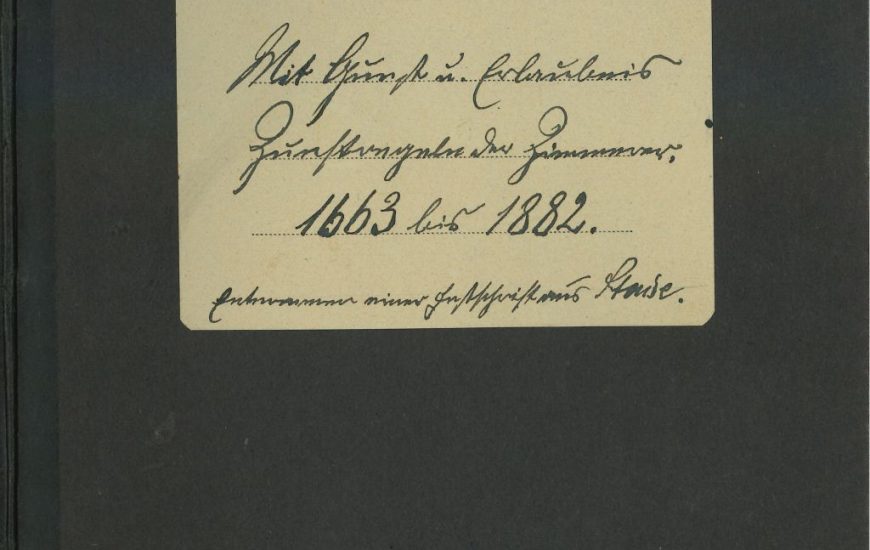 Mit Gunst u. Erlaubnis
Zunftregeln der Zimmerer.
1663 bis 1882.
Entnommen einer Festschrift aus Stade.